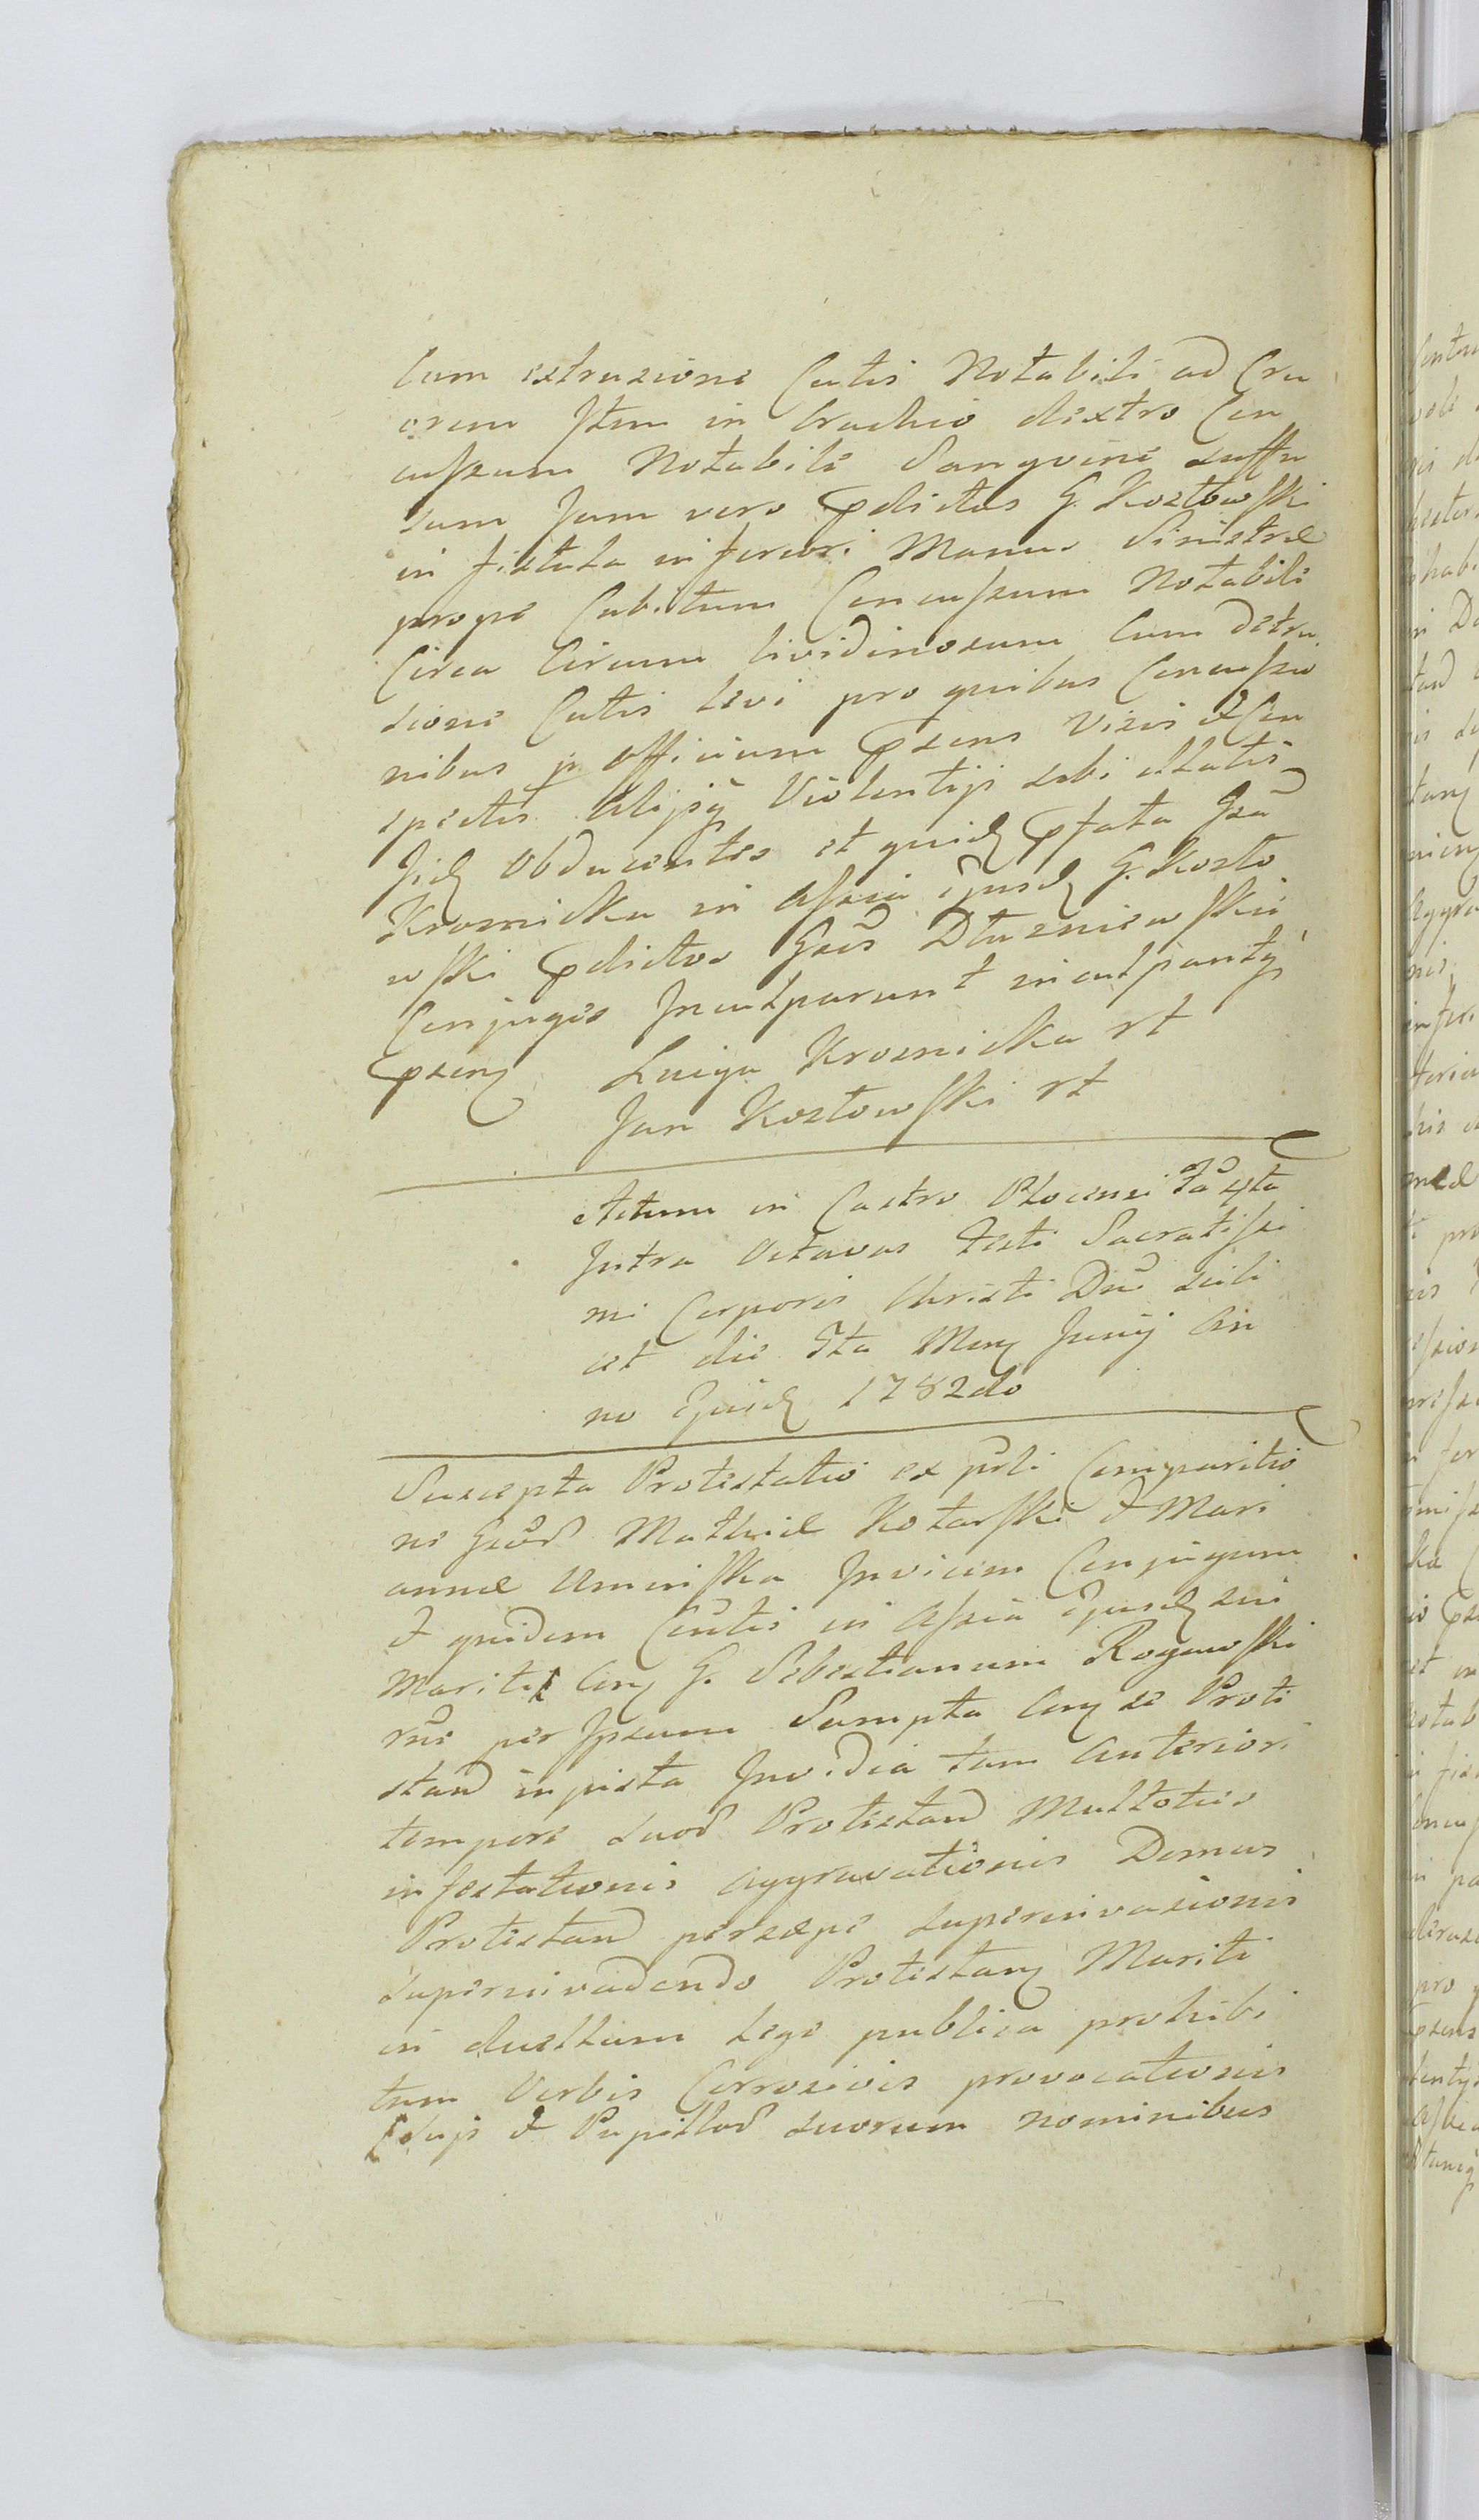 Cum extrusione Cutis Notabili ad Cru
orem Item in brachio dextro Con
cussum Notabile Sanguine suffu
sum Jam vero pdictus G. Kozłowski
in fistula inferiori Manus Sinistræ
prope Cubitum Concussum Notabile
Circa Circum lividinosum Cum detru
sione Cutis levi pro quibus Concussio
nibus p officium psens Visis & Con
spectis Alijsq Violentijs sibi illatis
Jid Obducentes et quid pfata Gsa
Krosnicka in Assia ejusd G. Kozło
wski pdictos Gsos Dłuzniewskie
Conjuges Inculparunt inculpantq
psenq Łucya Krosnicka rt
Jan Kozłowski rt
Actum in Castro Plocensi fa 4ta
Intra Octavas Festi Sacratissi
mi Corporis Christi Dni scili
cet die 5ta Mens Junij An
no Ejusd 1782do
Suscepta Protestatio ex psli Comparitio
ne Gsor Mathiæ Kotarski & Mari
annæ Uminska Invicem Conjugum
& quidem Conths in Assia Ejusd sui
Mariti Con G. Sebestianum Rogowski
rne per Ipsum Sumpta Con se Prote
stan injusta Invidia tam Anteriori
tempore suor Protestan Multoties
infestationis aggravationis Domus
Protestan persæpe superinvasionis
superinvadendo Protestan Mariti
in duellum lege publica prohibi
tum Verbis Corrosivis provocationis
Suis & Pupillor suorum nominibus